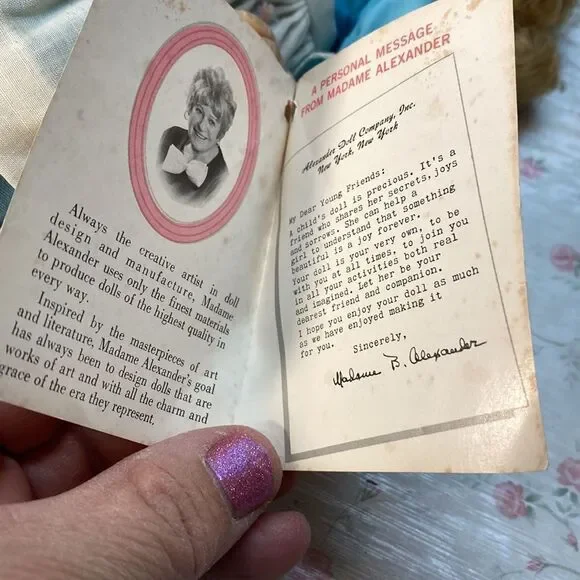 Always the creative artist in doll
design and manufacture, Madame
Alexander uses only the finest materials
to produce dolls of the highest quality in
every way.
Inspired by the masterpieces of art
and literature, Madame Alexander's goal
has always been to design dolls that are
works of art and with all the charm and
grace of the era they represent.
A PERSONAL MESSAGE
FROM MADAME ALEXANDER
Alexander Doll Company, Inc.
New York, New York
My Dear Young Friends:
A child's doll is precious. It's a
friend who shares her secrets, joys
and sorrows. She can help a
girl to understand that something
beautiful is a joy forever.
Your doll is your very own, to be
with you at all times, to join you
in all your activities both real
and imagined. Let her be your
dearest friend and companion.
I hope you enjoy your doll as much
as we have enjoyed making it
for you.
Sincerely,
Madame B. Alexander